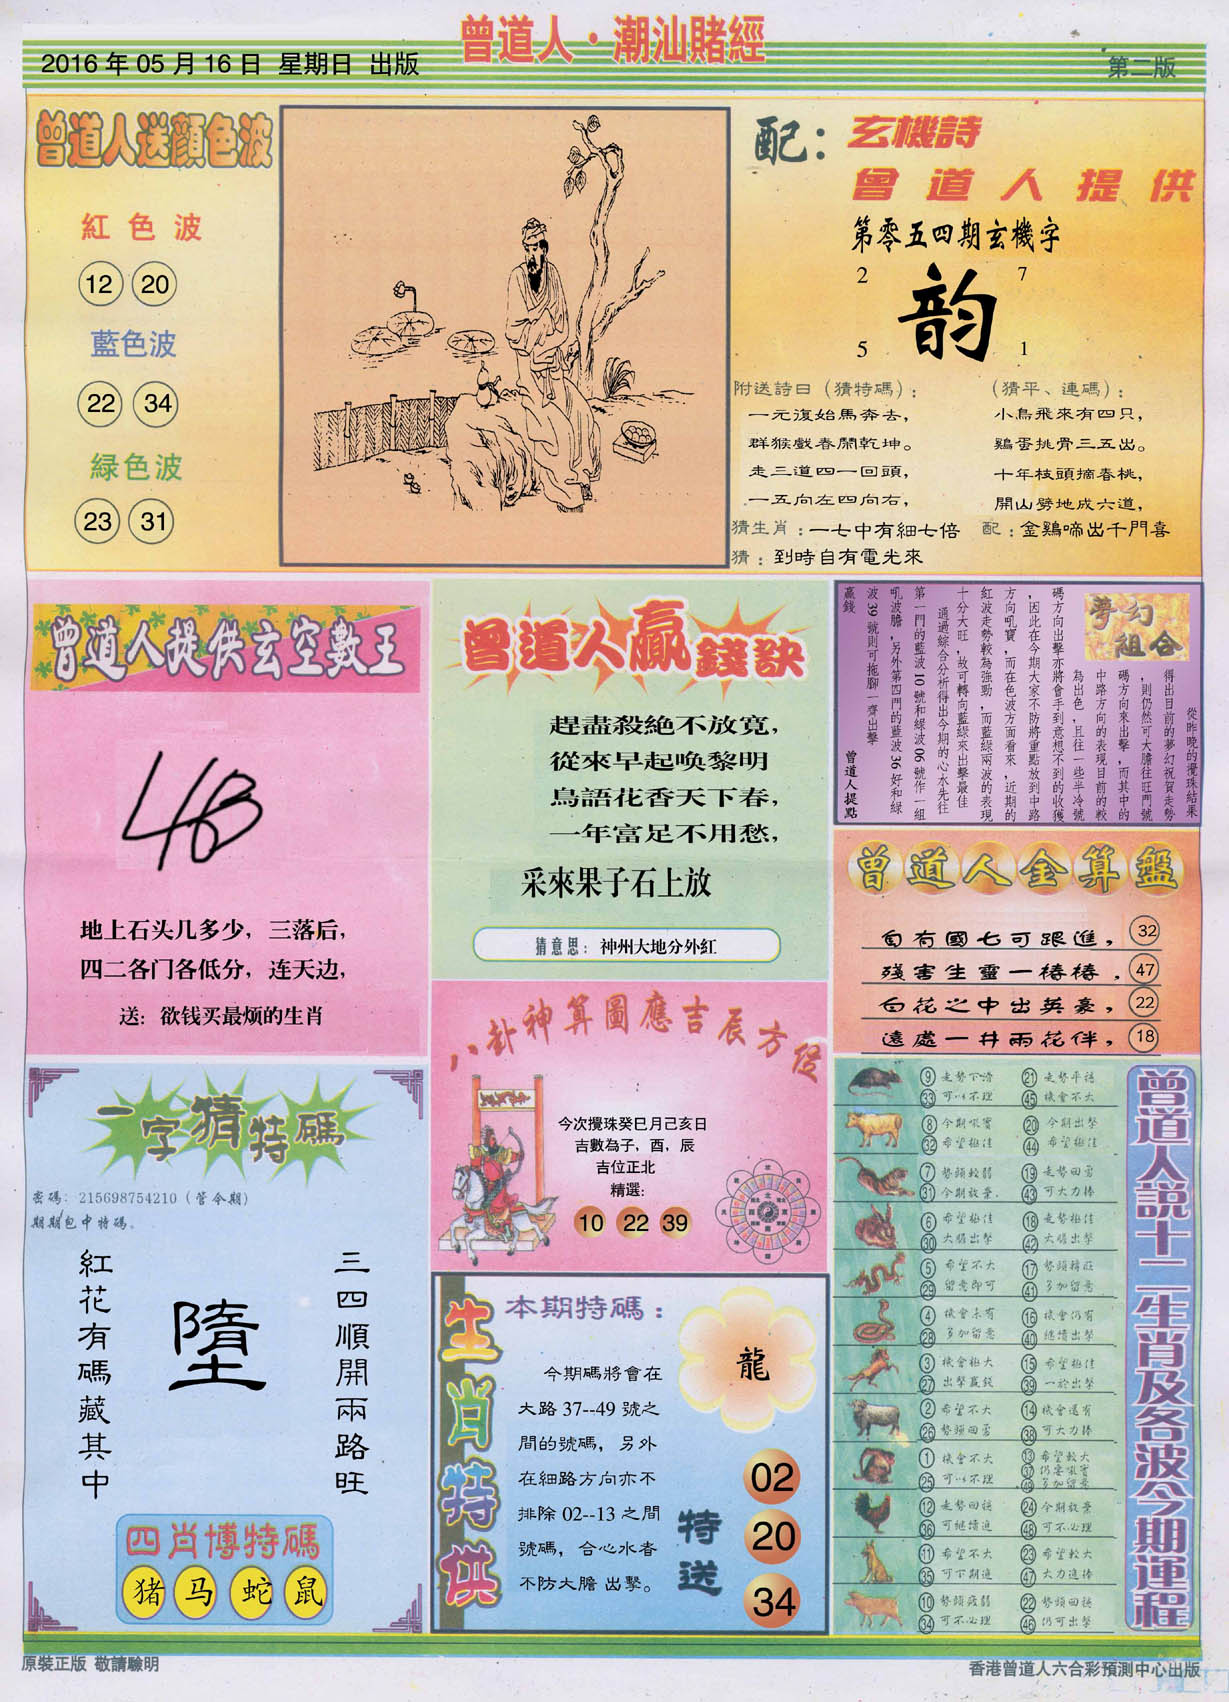 曾道人·潮汕賭經
2016年05月16日 星期日 出版
第二版
曾道人送顏色波
紅色波
12 20
藍色波
22 34
緑色波
23 31
配：
玄機詩
曾道人提供
第零五四期玄機字
2 7
韵
5 1
附送詩曰（猜特碼）：
一元復始馬奔去，
群猴戲春鬧乾坤。
走三道四一回頭，
一五向左四向右，
（猜平、連碼）：
小鳥飛來有四只，
鷄蛋挑骨三五出。
十年枝頭摘春桃，
開山劈地成六道，
猜生肖：一七中有細七倍
配：金鷄啼出千門喜
猜：到時自有電光來
曾道人提供玄空數王
地上石头几多少，三落后，
四二各门各低分，连天边，
送：欲钱买最烦的生肖
曾道人贏錢訣
趕盡殺絶不放寬，
從來早起唤黎明
鳥語花香天下春，
一年富足不用愁，
采來果子石上放
猜意思：神州大地分外紅
夢幻組合
從昨晚的攪珠結果
得出目前的夢幻祝賀走勢
，則仍然可大膽往旺門號
碼方向來出擊，而其中的
中路方向的表現目前的較
為出色，且往一些半冷號
碼方向出擊亦將會手到意想不到的收獲
，因此在今期大家不防將重點放到中路
方向吼寶，而在色波方面看來，近期的
紅波走勢較為強勁，而藍緑兩波的表現
十分大旺，故可轉向藍緑來出擊最佳
通過綜合分析得出今期的心水先往
第一門的藍波10號和緑波06號作一組
吼波膽，另外第四門的藍波36好和緑
波39號則可拖腳一齊出擊
贏錢
曾道人提點
曾道人金算盤
自有國七可跟進， 32
殘害生靈一樁樁． 47
白花之中出英豪， 22
遠處一井兩花伴， 18
一字猜特碼
密碼：215698754210（管令期）
期期包中特碼。
三四順開兩路旺
墮
紅花有碼藏其中
四肖博特碼
猪 马 蛇 鼠
八卦神算圖應吉辰方位
今次攪珠癸巳月己亥日
吉數為子，酉，辰
吉位正北
精選：
10 22 39
生肖特供
本期特碼：
龍
今期碼將會在
大路37--49號之
間的號碼，另外
在細路方向亦不
排除02--13之間
號碼，合心水者
不防大膽 出擊。
特送
02
20
34
曾道人説十二生肖及各波今期運程
9 走勢下滑 21 走勢平穩
33 可以不理 45 機會不大
8 今期吼寶 20 今期出擊
32 希望極佳 44 希望極佳
7 勢頭較弱 19 走勢回勇
31 今期放棄． 43 可大力捧
6 希望極佳 18 走勢極佳
30 大膽出擊 42 大膽出擊
5 希望不大 17 勢頭轉旺
29 留意即可 41 多加留意
4 機會未有 16 機會仍有
28 多加留意 40 繼續出擊
3 機會極大 15 希望極佳
27 出擊贏錢 39 一於出擊
2 希望不大 14 機會還有
26 勢頭回勇 38 可大力捧
1 機會不大 13 希望較大
25 可以不理 37 仍要吼寶
49 多加留意
12 走勢回穩 24 今期放棄
36 可繼續追 48 可不必理
11 希望不大 23 希望較大
35 可下期追 47 大力追捧
10 勢頭疲弱 22 勢頭回穩
34 可不必理 46 仍可出擊
原裝正版 敬請驗明
香港曾道人六合彩預測中心出版